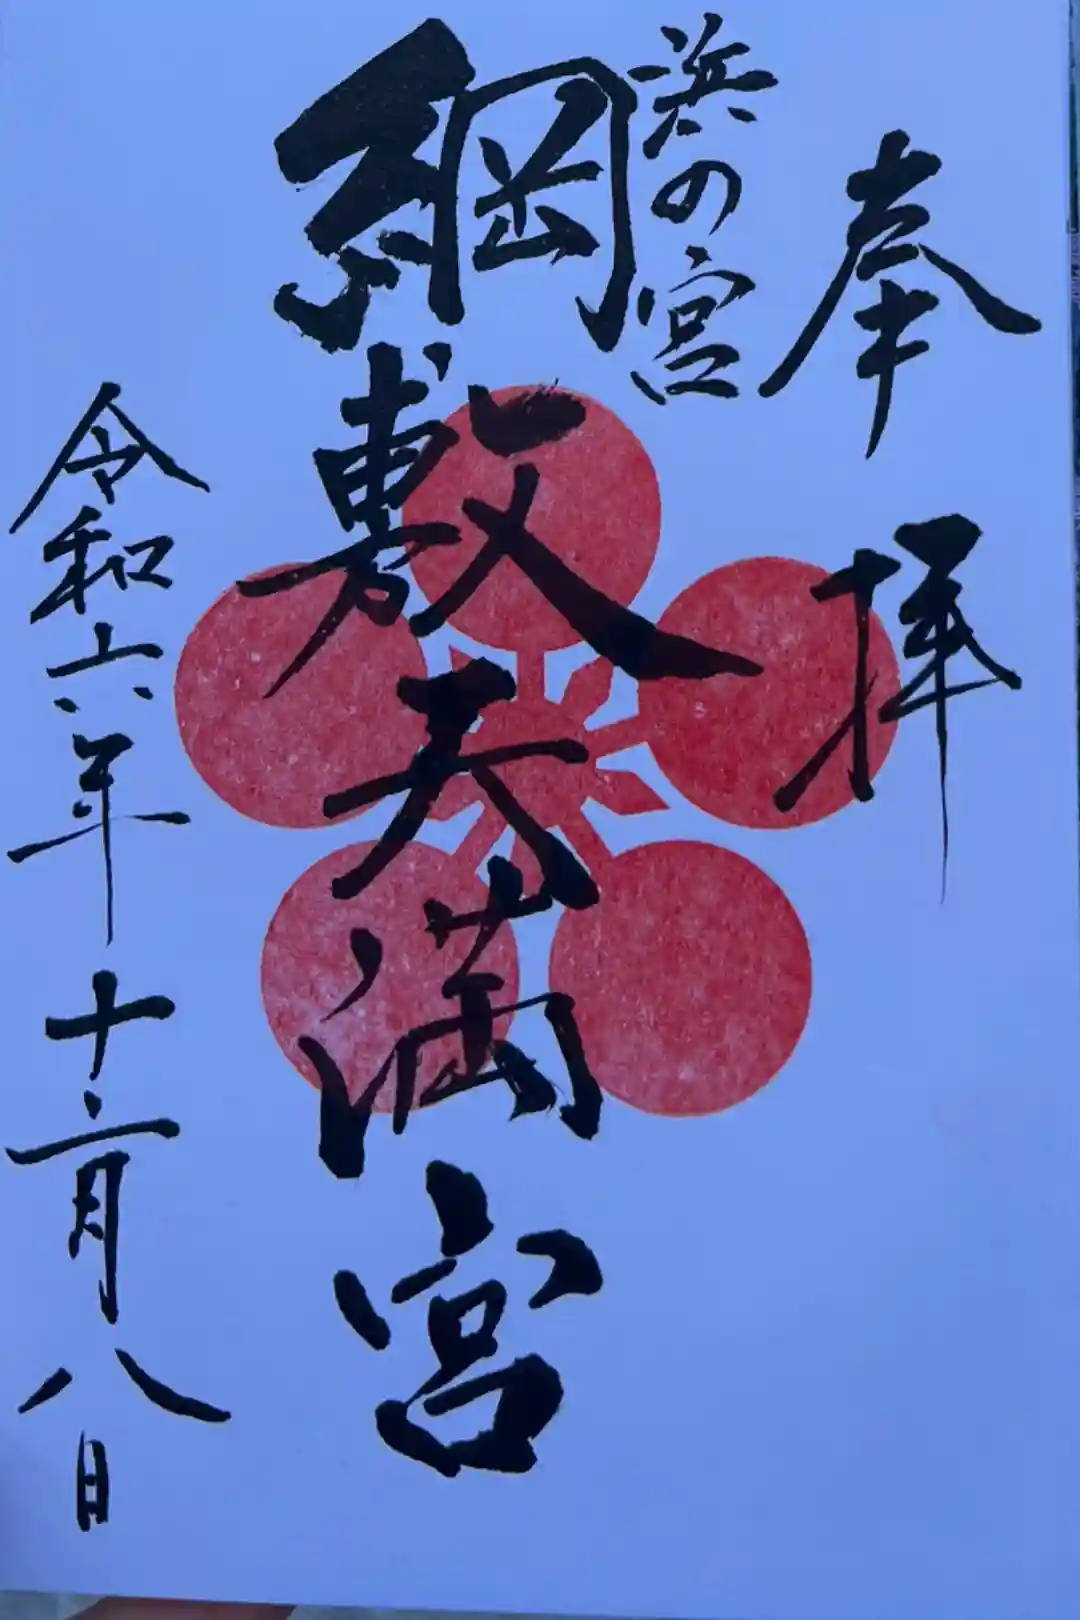 奉拝
浜の宮
綱敷天満宮
令和六年十二月八日